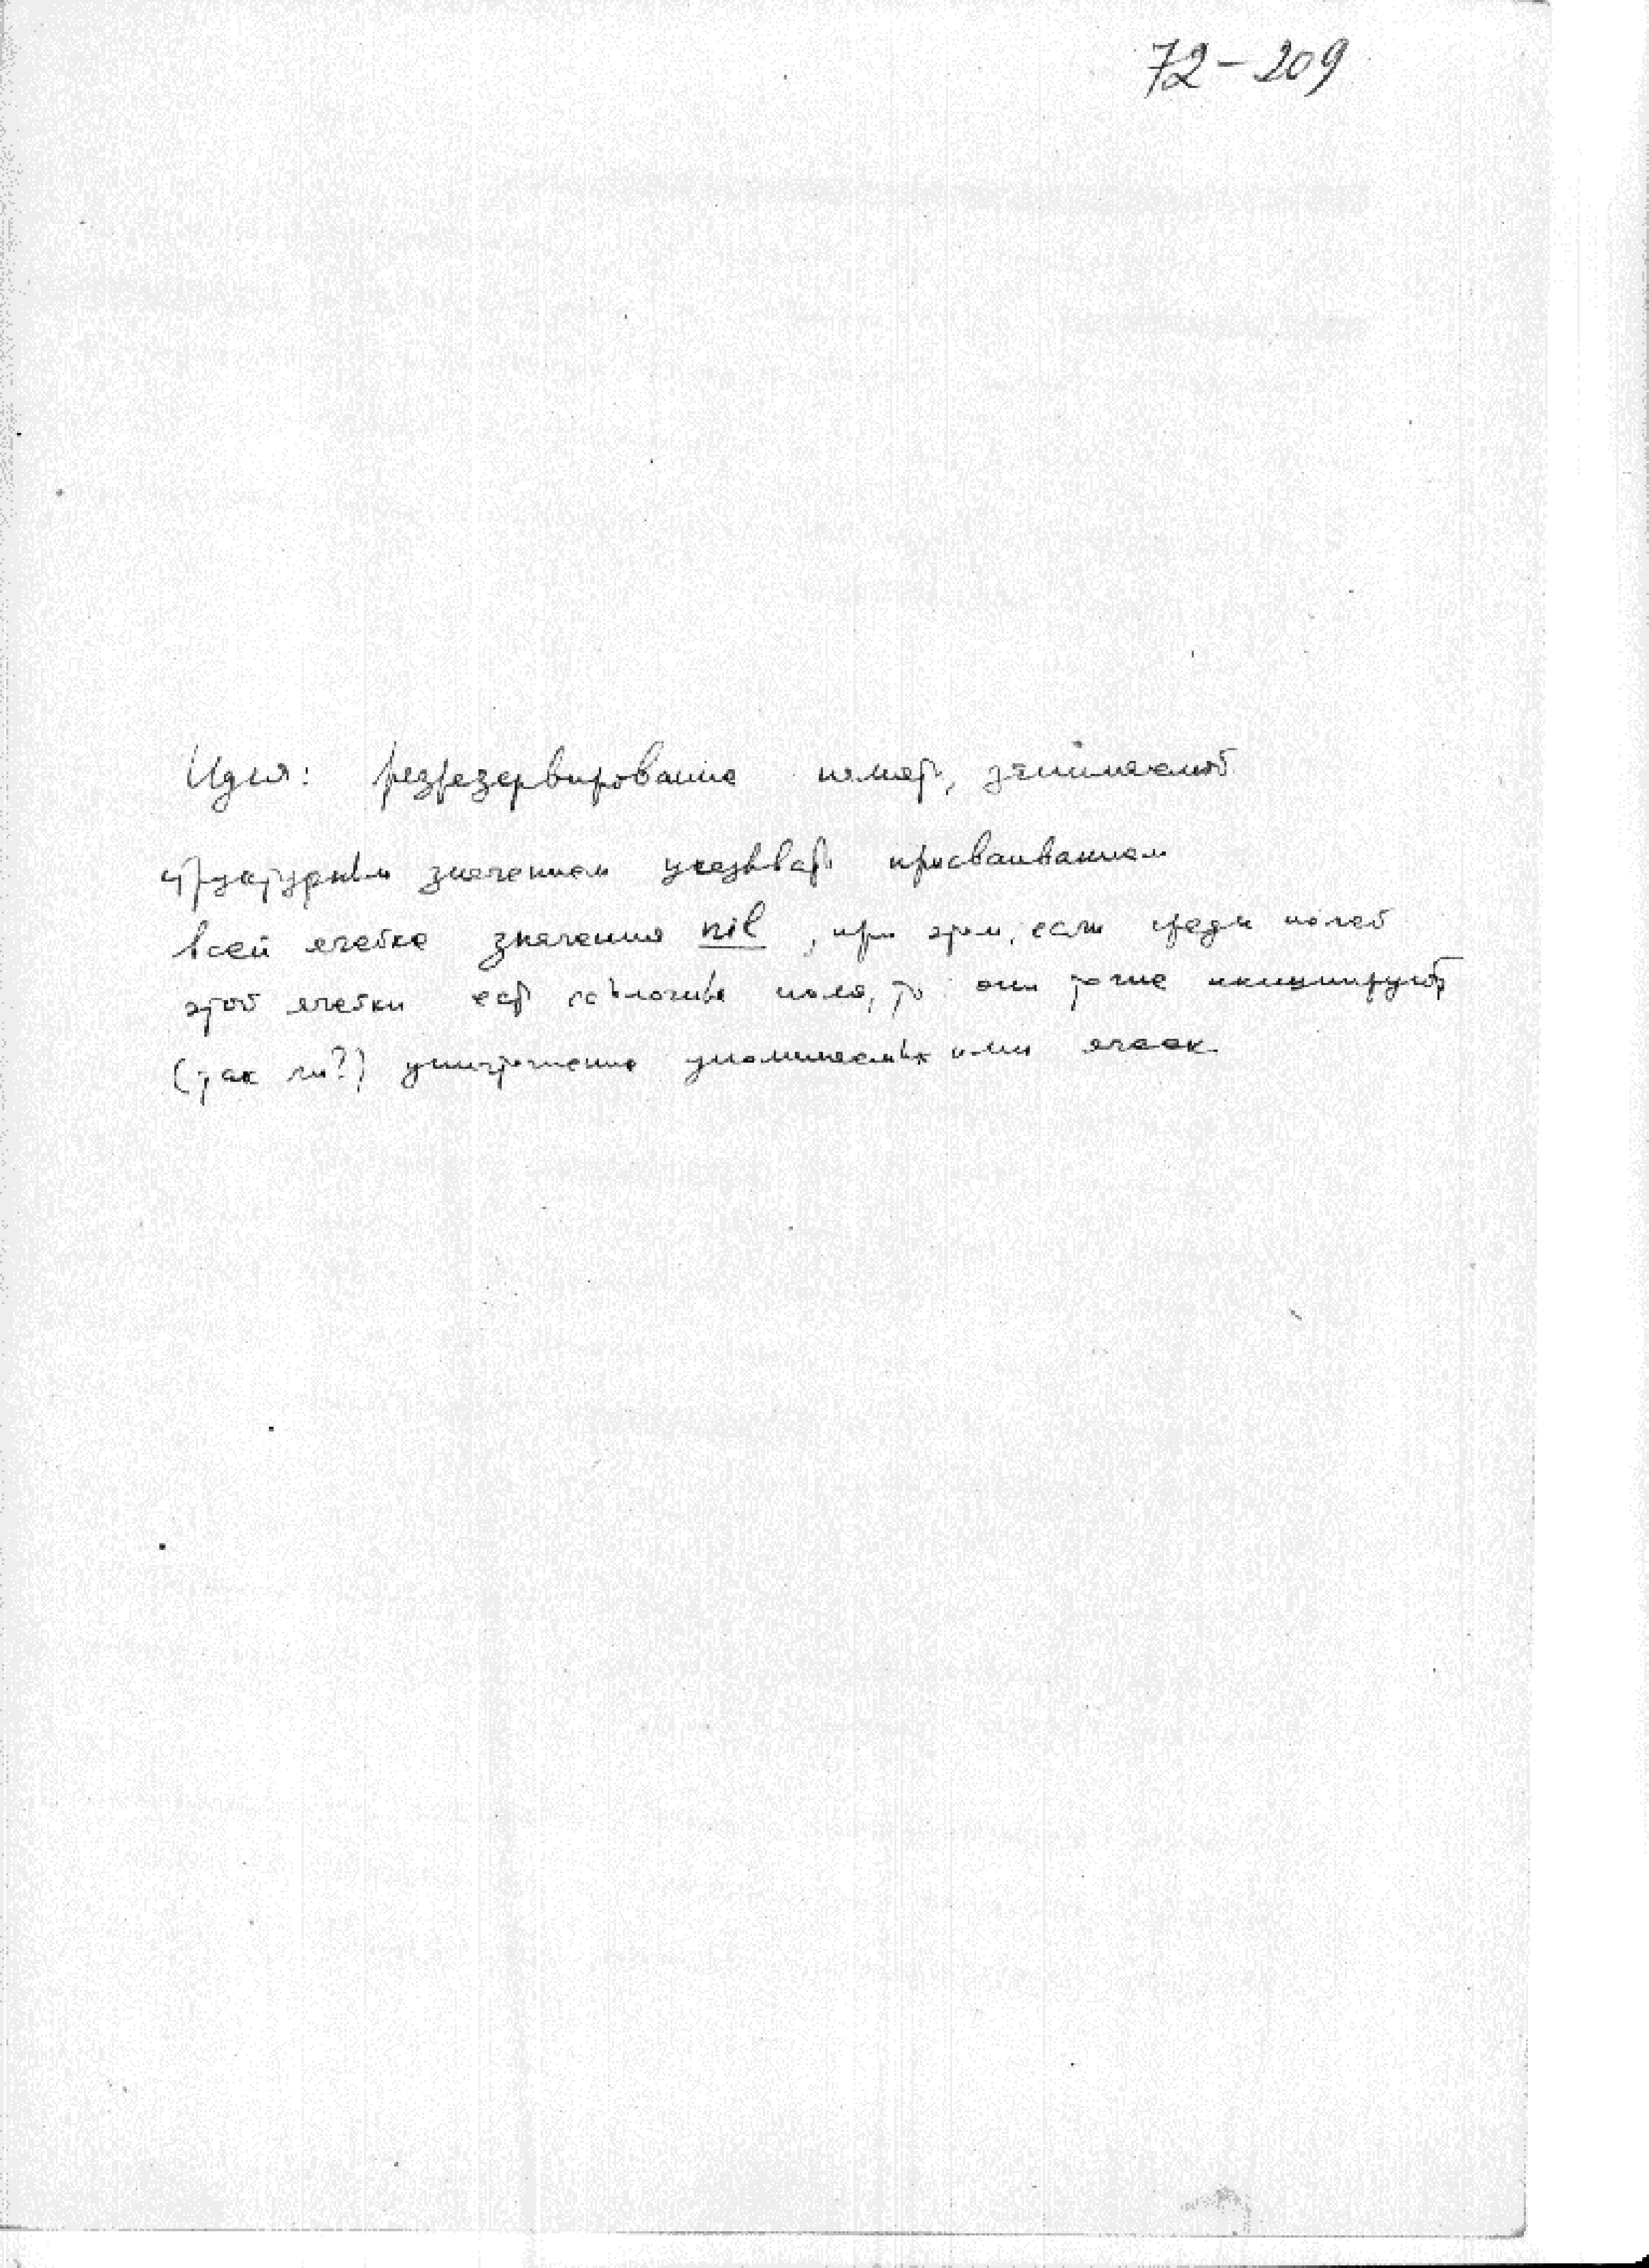 72-209
Идея: резрезервирование памяти, занимаемой
структурным значением указывать присваиванием
всей ячейке значения nil, при этом, если среди полей
этой ячейки есть ссылочные поля, то они тоже инициируют
(так ли?) уничтожение упоминаемых ими ячеек.